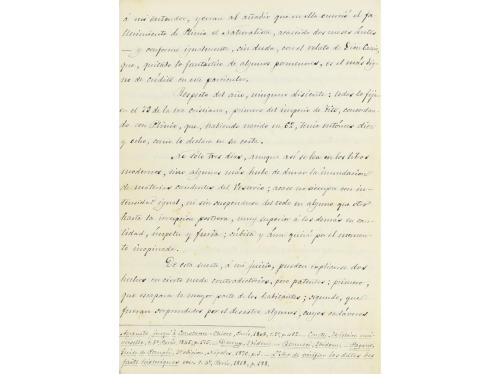 á mi entender, yerran al añadir que en ella ocurrió el fa-
llecimiento de Plinio el Naturalista, acaecido dos meses ántes
— y conforme igualmente, sin duda, con el relato de Dion Casio,
que, quitado lo fantástico de algunos pormenores, es el más dig-
no de crédito en este particular.
Respecto del año, ninguno disiente; todos lo fijan
en el 79 de la era cristiana, primero del imperio de Tito, concordan-
do con Plinio, que, habiendo nacido en 62, tenia entónces diez
y ocho, como lo declara en su carta.
No sólo tres dias, aunque así se lea en los libros
modernos, sino algunos más hubo de durar la inundacion
de materias candentes del Vesuvio; acaso no siempre con in-
tensidad igual, ni sin suspenderse del todo en alguno que otro
hasta la irrupcion postrera, muy superior á las demás en can-
tidad, ímpetu y furia; súbita y áun quizá por el momen-
to inopinada.
De esta suerte, á mi juicio, pueden explicarse dos
hechos en cierto modo contradictorios, pero patentes: primero,
que escapara la mayor parte de los habitantes; segundo, que
fueran sorprendidos por el desastre algunos, cuyos cadáveres